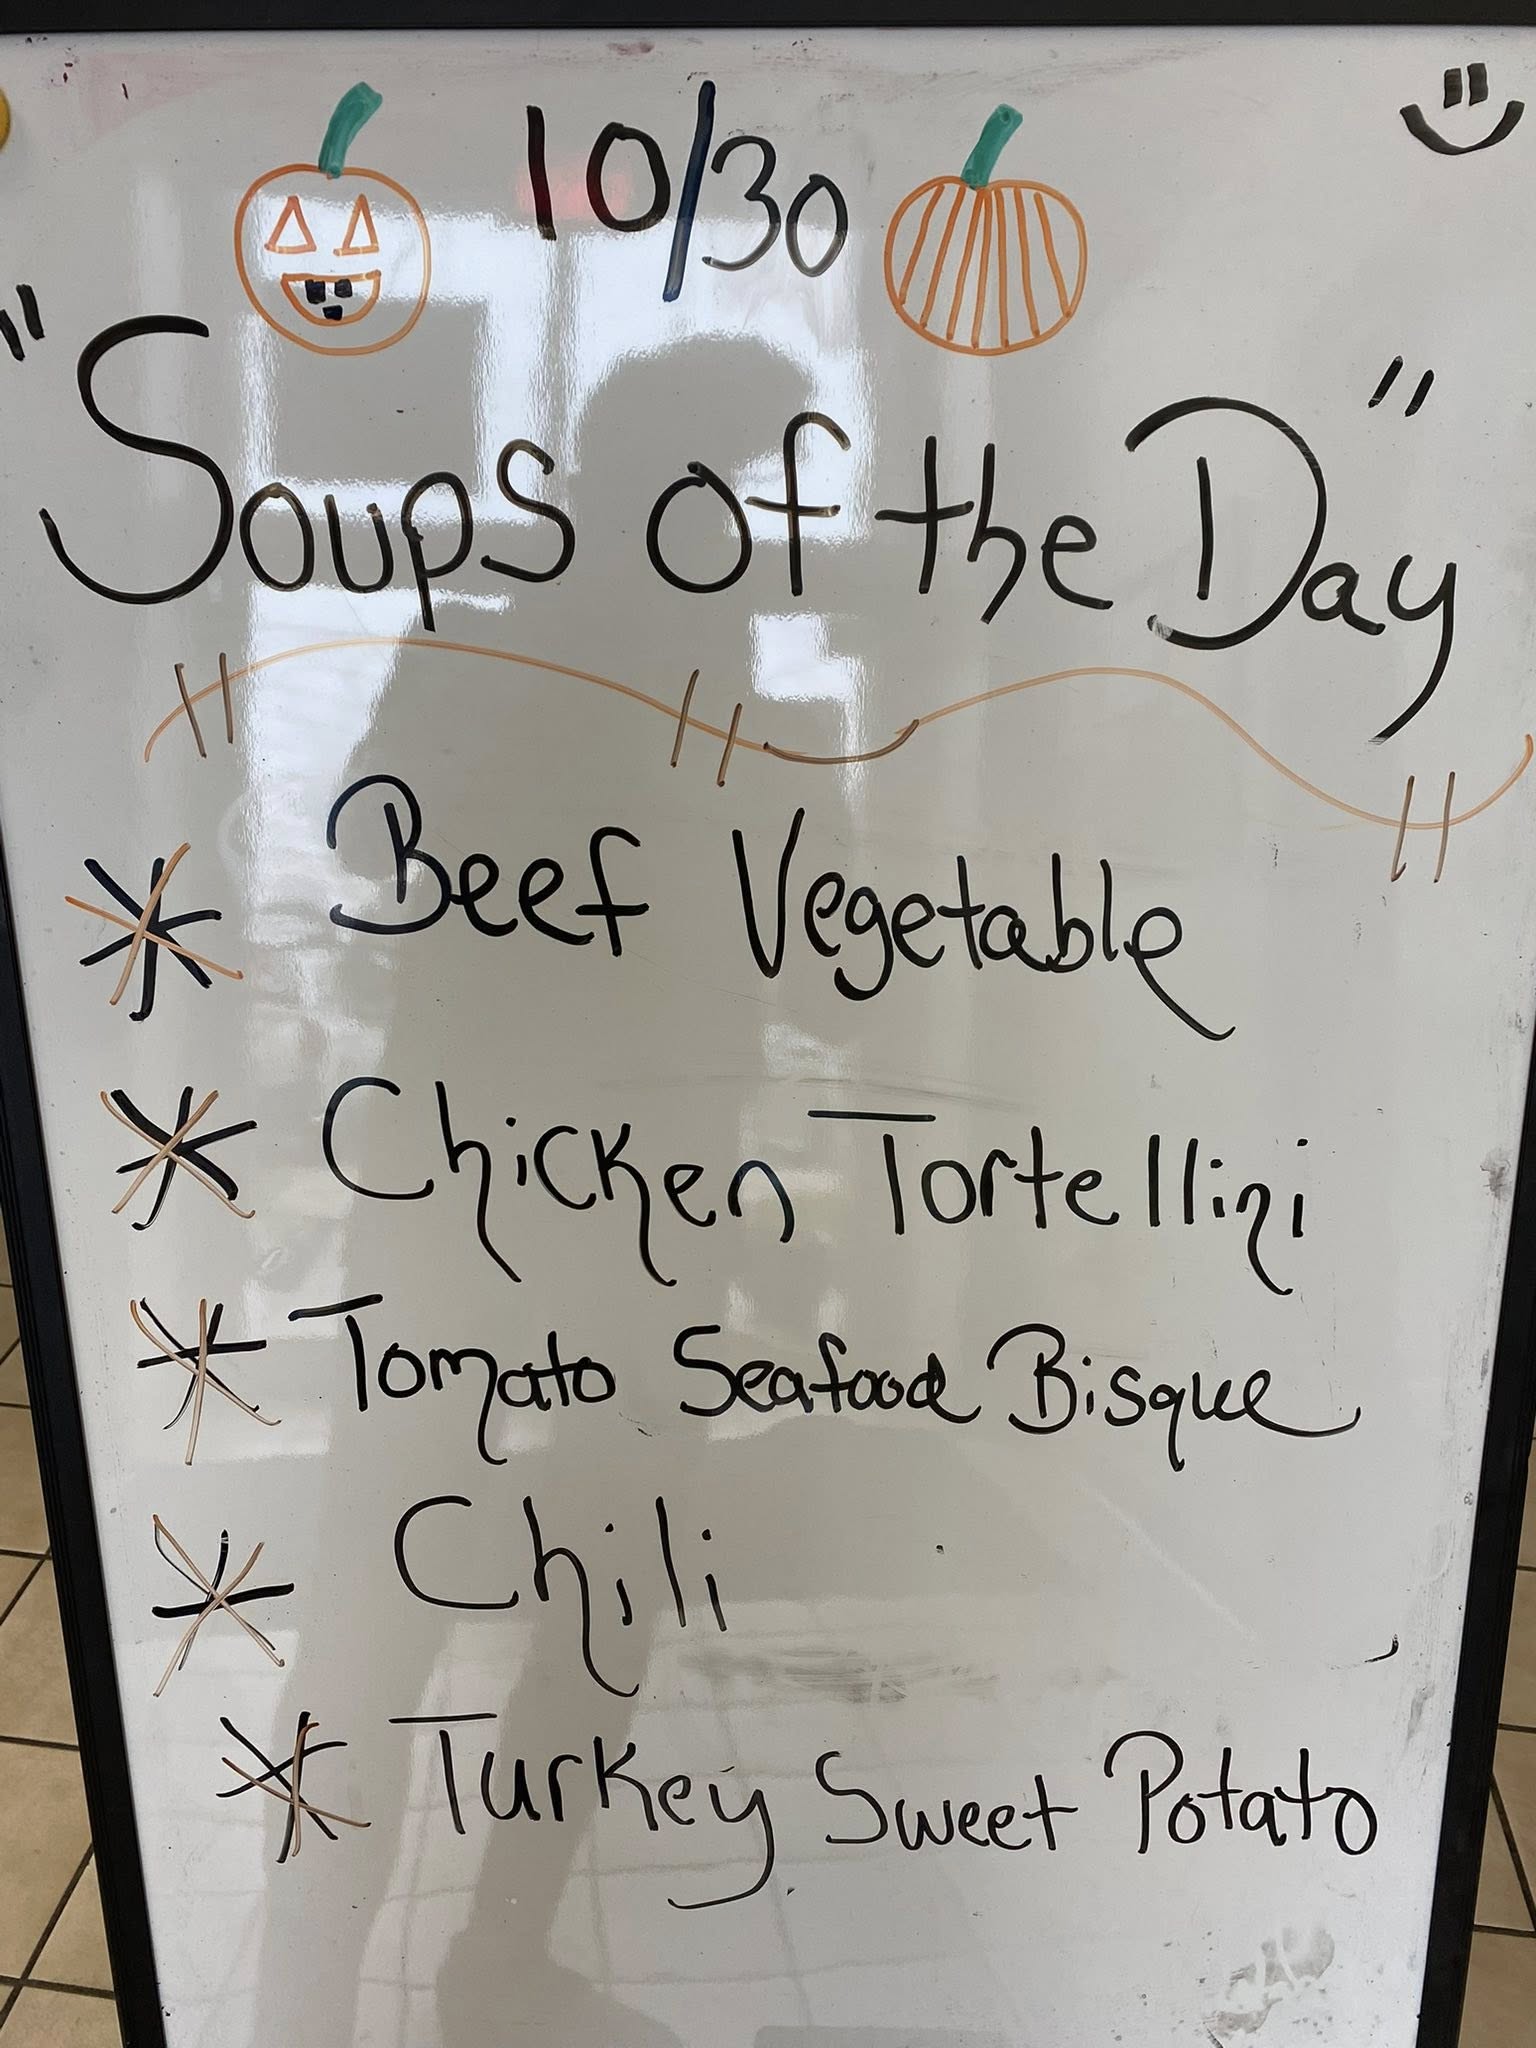 10/30
"Soups of the Day"
Beef Vegetable
Chicken Tortellini
Tomato Seafood Bisque
Chili
Turkey Sweet Potato